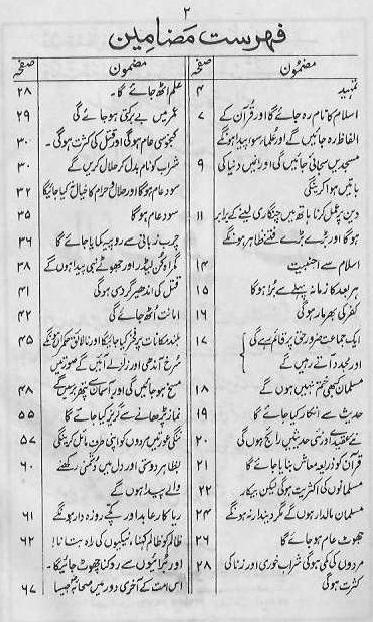 ۲
فہرست مضامین
مضمون صفحہ
تمہید ۴
اسلام کا نام رہ جائے گا اور قرآن کے ۷
الفاظ رہ جائیں گے اور علماء سوء پیدا ہونگے
مسجدیں سجائی جائیں گی اور انہیں دنیا کی ۹
باتیں ہوا کرینگی
دین پر عمل کرنا ہاتھ میں چنگاری لینے کے برابر ۱۱
ہوگا اور بڑے بڑے فتنے ظاہر ہونگے
اسلام سے اجنبیت ۱۴
ہر بعد کا زمانہ پہلے سے برا ہوگا ۱۵
کفر کی بھر مار ہوگی ۱۶
ایک جماعت ضرور حق پر قائم رہے گی ۱۷
اور مجدد آتے رہیں گے
مسلمان کبھی ختم نہیں ہوں گے ۱۸
حدیث سے انکار کیا جائے گا ۱۹
نئے عقیدے اور نئی حدیثیں رائج ہوں گی ۲۰
قرآن کو ذریعہ معاش بنایا جائے گا ۲۱
مسلمانوں کی اکثریت ہوگی لیکن بیکار ۲۲
مسلمان مالدار ہوں گے مگر دیندار نہ ہونگے ۲۴
جھوٹ عام ہو جائے گا ۲۶
مردوں کی کمی ہوگی شراب خوری اور زنا کی ۲۸
کثرت ہوگی
مضمون صفحہ
علم اٹھ جائے گا۔ ۲۸
عمر میں بے برکتی ہو جائے گی ۲۹
کنجوسی عام ہوگی اور قتل کی کثرت ہوگی۔ ۳۰
شراب کو نام بدل کر حلال کریں گے ۳۰
سود عام ہوگا اور حلال حرام کا خیال نہ کیا جائیگا ۳۲
سود عام ہوگا ۳۵
چرب زبانی سے روپیہ کمایا جائے گا ۳۶
گمراہ کن لیڈر اور جھوٹے نبی پیدا ہوں گے ۳۸
قتل کی اندھیر گردی ہوگی ۴۱
امانت اٹھ جائے گی ۴۲
بلند مکانات پر فخر کیا جائیگا اور نالائق حکمراں ہونگے ۴۵
سرخ آندھی اور زلزلے آئیں گے صورتیں
مسخ ہو جائیں گی اور آسمان سے پتھر برسیں گے ۴۸
نماز پڑھانے سے گریز کیا جائے گا ۵۵
ننگی عورتیں مردوں کو اپنی طرف مائل کرینگی ۵۷
بظاہر دوستی اور دل میں دشمنی رکھنے ۶۰
والے پیدا ہوں گے
ریا کار عابد اور کچے روزہ دار ہونگے ۶۱
ظالم کو ظالم کہنا، نیکیوں کی راہ بتانا ۶۲
اور برائیوں سے روکنا چھوٹ جائیگا۔
اس امت کے آخری دور میں صحابہ جیسا ۶۷